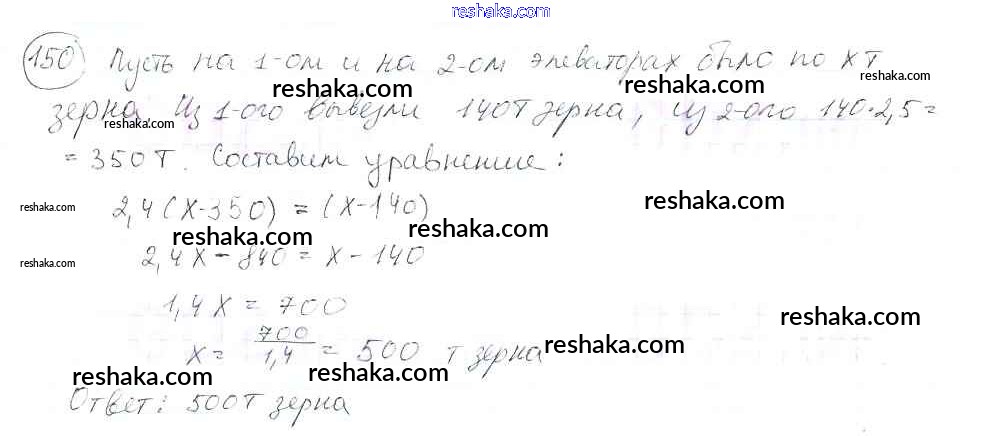 reshaka.com
150 Пусть на 1-ом и на 2-ом элеваторах было по х т
reshaka.com
reshaka.com
reshaka.com
зерна. Из 1-ого вывезли 140т зерна, из 2-ого 140·2,5=
reshaka.com
= 350т. Составим уравнение:
reshaka.com
reshaka.com
2,4(х-350) = (х-140)
reshaka.com
reshaka.com
2,4х - 840 = х - 140
reshaka.com
1,4х = 700
reshaka.com
х = 700/1,4 = 500 т зерна
reshaka.com
reshaka.com
reshaka.com
Ответ: 500т зерна